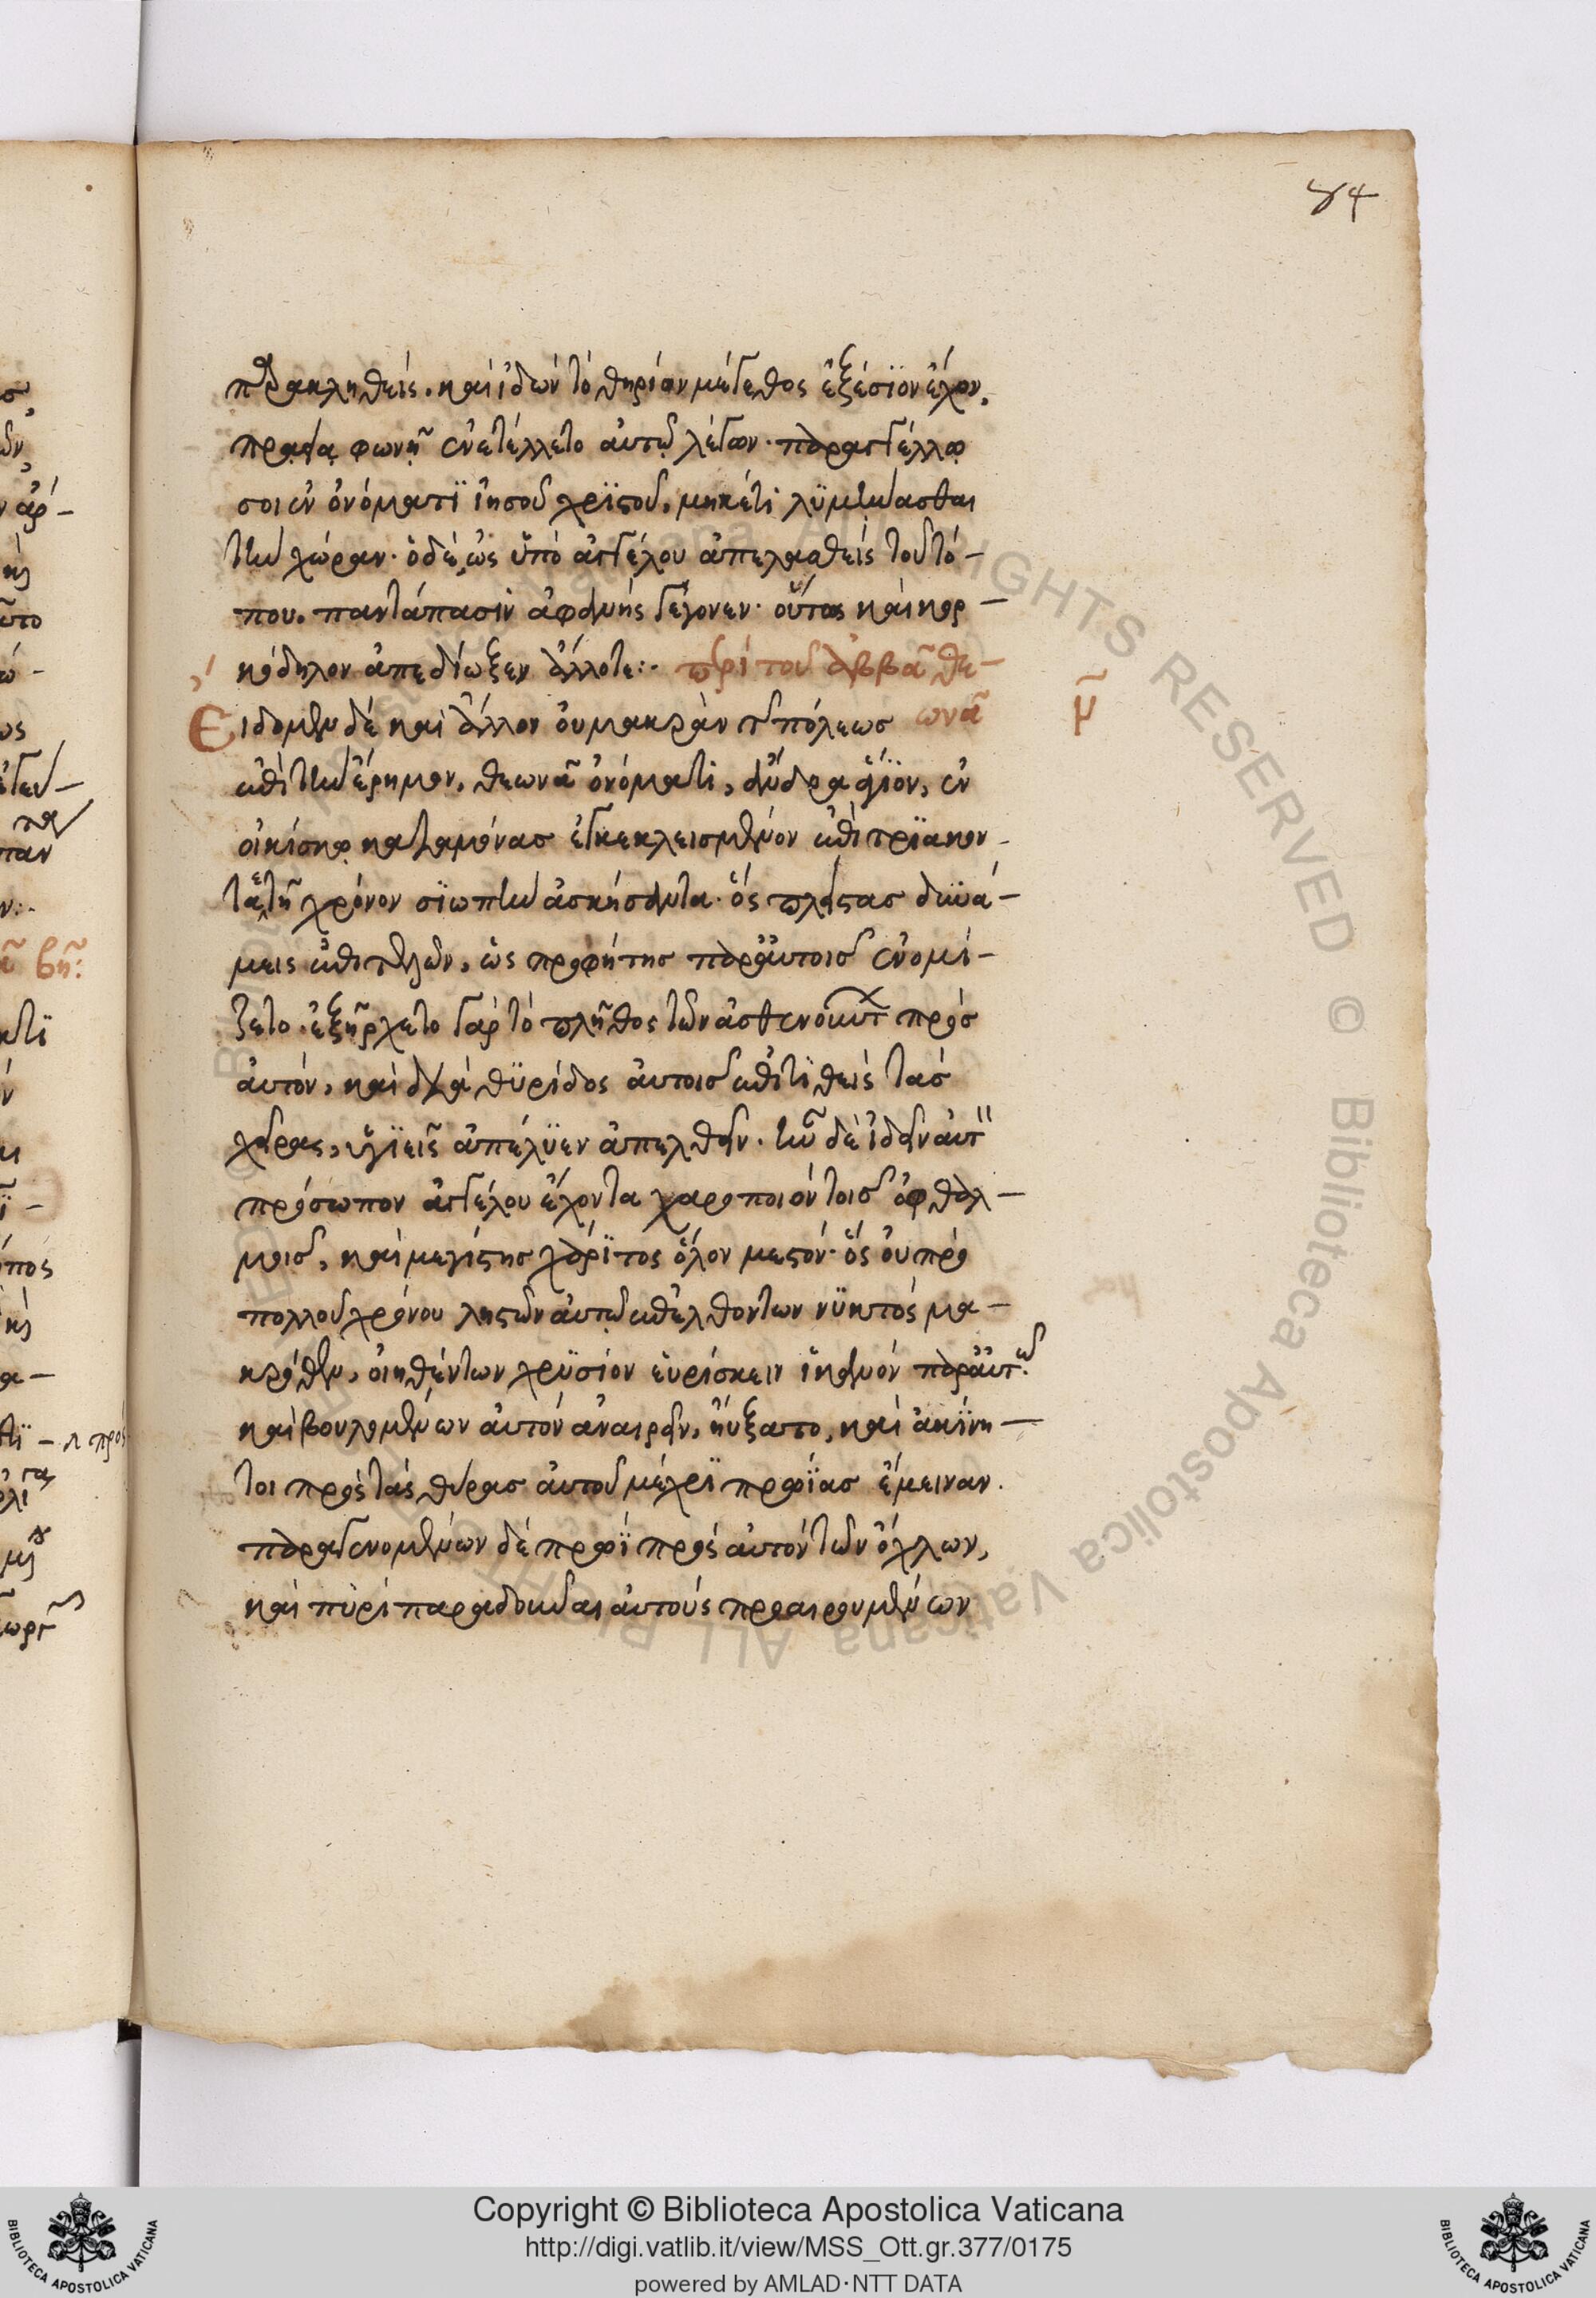 84
παρακληθείς. καὶ ἰδὼν τὸ θηρίον μέγεθος ἐξέσϊον ἔχον,
πραεία φωνῇ ἐνετέλλετο αὐτῷ λέγων· παραγγέλλω
σοι ἐν ὀνόματϊ ἰησοῦ χρϊστοῦ, μηκέτι λϋμήνασθαι
τὴν χώραν· ὁ δὲ, ὡς ὑπὸ ἀγγέλου ἀπελαθεὶς τοῦ τό-
που. παντάπασιν ἀφανὴς γέγονεν· οὕτως καὶ κρο-
κόδηλον ἀπεδίωξεν ἄλλοτε:· περὶ τοῦ ἀββᾶ θε-
Ειδομεν δὲ καὶ ἄλλον οὐ μακρὰν τῆς πόλεως ωνᾶ
ἐπὶ τὴν ἔρημον, θεωνᾶ ὀνόματι, ἄνδρα ἅγϊον, ἐν
οἰκίσκῳ καταμόνας ἐγκεκλεισμένον ἐπὶ τρϊακον-
τα ἔτη χρόνον σϊωπὴν ἀσκήσαντα· ὃς πλείστας δυνά-
μεις ἐπιτελῶν, ὡς προφήτης παρ' αὐτοῖς ἐνομί-
ζετο· ἐξήρχετο γὰρ τὸ πλῆθος τῶν ἀσθενούντων πρὸς
αὐτόν, καὶ διὰ θϋρίδος αὐτοῖς ἐπιτϊθεὶς τὰς
χεῖρας, ὑγϊεῖς ἀπέλϋεν ἀπελθεῖν. ἦν δὲ ἰδεῖν αὐτὸν
πρόσωπον ἀγγέλου ἔχοντα χαροποιὸν τοῖς ὀφθαλ-
μοῖς, καὶ μεγίστης χάρϊτος ὅλον μεστόν· ὃς οὐ πρὸ
πολλοῦ χρόνου ληστῶν αὐτῷ ἐπελθόντων νϋκτὸς μα-
κρόθεν, οἰηθέντων χρϋσίον εὑρίσκειν ἱκανὸν παρ' αὐτῷ.
καὶ βουλομένων αὐτὸν ἀναιρεῖν, ηὔξατο, καὶ ἀκίνη-
τοι πρὸς τὰς θύρας αὐτοῦ μέχρϊ πρωΐας ἔμειναν.
παραγενομένων δὲ πρωῒ πρὸς αὐτὸν τῶν ὄχλων,
καὶ πυρὶ παραδοῦναι αὐτοὺς προαιρουμένων
Copyright © Biblioteca Apostolica Vaticana
http://digi.vatlib.it/view/MSS_Ott.gr.377/0175
powered by AMLAD·NTT DATA